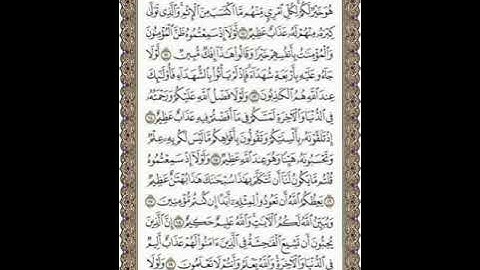 هُوَ خَيْرٌ لَّكُمْ لِكُلِّ امْرِئٍ مِّنْهُم مَّا اكْتَسَبَ مِنَ الْإِثْمِ وَالَّذِي تَوَلَّىٰ
كِبْرَهُ مِنْهُمْ لَهُ عَذَابٌ عَظِيمٌ ١١ لَّوْلَا إِذْ سَمِعْتُمُوهُ ظَنَّ الْمُؤْمِنُونَ
وَالْمُؤْمِنَاتُ بِأَنفُسِهِمْ خَيْرًا وَقَالُوا هَٰذَا إِفْكٌ مُّبِينٌ ١٢ لَّوْلَا
جَاءُو عَلَيْهِ بِأَرْبَعَةِ شُهَدَاءَ فَإِذْ لَمْ يَأْتُوا بِالشُّهَدَاءِ فَأُولَٰئِكَ
عِندَ اللَّهِ هُمُ الْكَاذِبُونَ ١٣ وَلَوْلَا فَضْلُ اللَّهِ عَلَيْكُمْ وَرَحْمَتُهُ
فِي الدُّنْيَا وَالْآخِرَةِ لَمَسَّكُمْ فِي مَا أَفَضْتُمْ فِيهِ عَذَابٌ عَظِيمٌ ١٤
إِذْ تَلَقَّوْنَهُ بِأَلْسِنَتِكُمْ وَتَقُولُونَ بِأَفْوَاهِكُم مَّا لَيْسَ لَكُم بِهِ عِلْمٌ
وَتَحْسَبُونَهُ هَيِّنًا وَهُوَ عِندَ اللَّهِ عَظِيمٌ ١٥ وَلَوْلَا إِذْ سَمِعْتُمُوهُ
قُلْتُم مَّا يَكُونُ لَنَا أَن نَّتَكَلَّمَ بِهَٰذَا سُبْحَانَكَ هَٰذَا بُهْتَانٌ عَظِيمٌ
١٦ يَعِظُكُمُ اللَّهُ أَن تَعُودُوا لِمِثْلِهِ أَبَدًا إِن كُنتُم مُّؤْمِنِينَ ١٧
وَيُبَيِّنُ اللَّهُ لَكُمُ الْآيَاتِ وَاللَّهُ عَلِيمٌ حَكِيمٌ ١٨ إِنَّ الَّذِينَ
يُحِبُّونَ أَن تَشِيعَ الْفَاحِشَةُ فِي الَّذِينَ آمَنُوا لَهُمْ عَذَابٌ أَلِيمٌ
فِي الدُّنْيَا وَالْآخِرَةِ وَاللَّهُ يَعْلَمُ وَأَنتُمْ لَا تَعْلَمُونَ ١٩